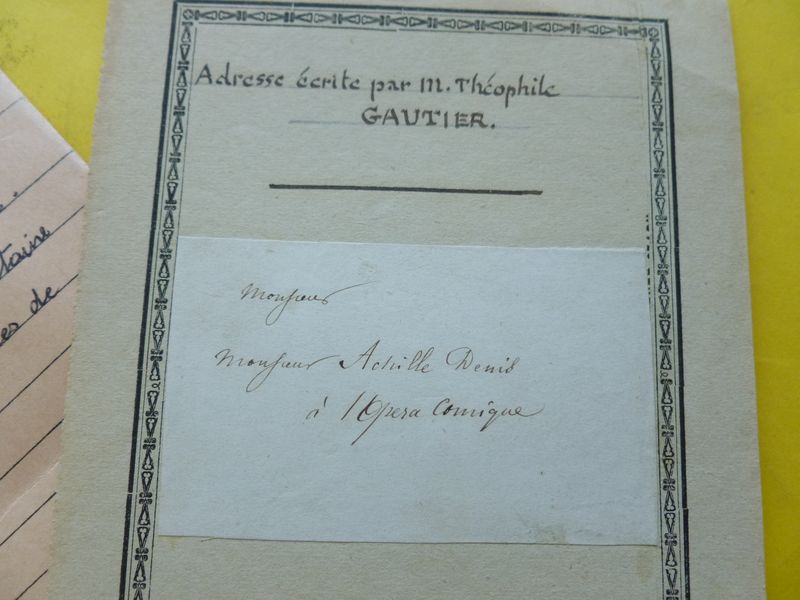 Adresse écrite par M. Théophile
GAUTIER.
Monsieur
Monsieur Achille Denis
à l'Opera Comique
taire
es de